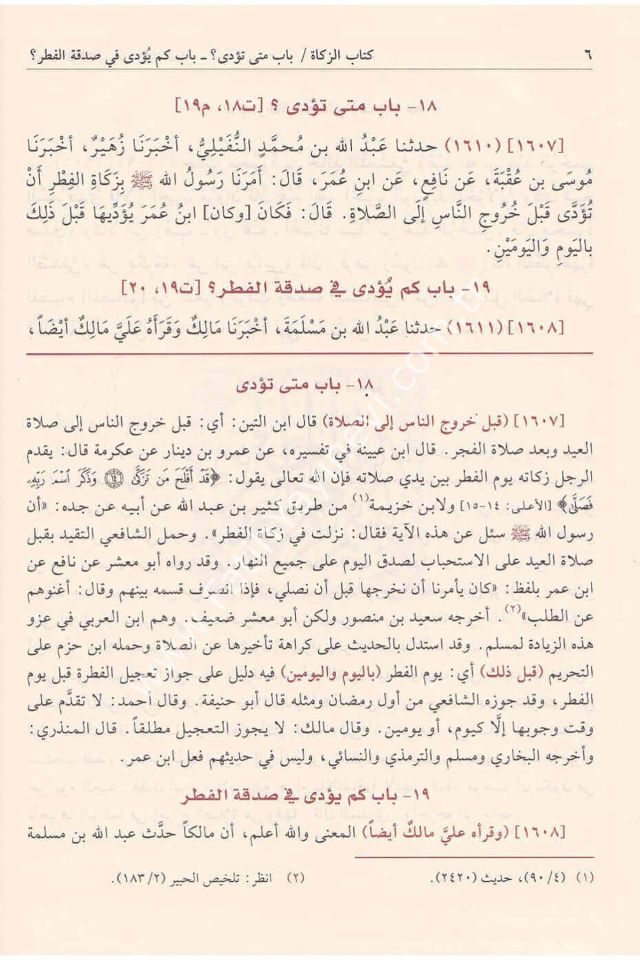 ٦ كتاب الزكاة / باب متى تؤدى؟ ـ باب كم يُؤدى في صدقة الفطر؟
١٨- باب متى تؤدى ؟ [ت١٨، م١٩]
[١٦٠٧] (١٦١٠) حدثنا عَبْدُ الله بن مُحمَّدٍ النُّفَيْلِيُّ، أخْبَرَنَا زُهَيْرٌ، أخْبَرَنَا
مُوسَى بن عُقْبَةَ، عَن نَافِعٍ، عَن ابنِ عُمَرَ، قَالَ: أمَرَنَا رَسُولُ الله ﷺ بِزَكَاةِ الفِطْرِ أَنْ
تُؤَدَّى قَبْلَ خُرُوجِ النَّاسِ إلَى الصَّلاةِ. قَالَ: فَكَانَ [وكان] ابنُ عُمَرَ يُؤَدِّيهَا قَبْلَ ذَلِكَ
بالْيَومِ وَاليَومَيْنِ.
١٩- باب كم يُؤدى في صدقة الفطر؟ [ت١٩، ٢٠]
[١٦٠٨] (١٦١١) حدثنا عَبْدُ الله بن مَسْلَمَةَ، أخْبَرَنَا مَالِكٌ وَقَرَأهُ عَلَيَّ مَالِكٌ أيْضَاً،
١٨- باب متى تؤدى
[١٦٠٧] (قبل خروج الناس إلى الصلاة) قال ابن التين: أي: قبل خروج الناس إلى صلاة
العيد وبعد صلاة الفجر. قال ابن عيينة في تفسيره، عن عمرو بن دينار عن عكرمة قال: يقدم
الرجل زكاته يوم الفطر بين يدي صلاته فإن الله تعالى يقول: ﴿قَدْ أَفْلَحَ مَن تَزَكَّىٰ ﴿١٤﴾ وَذَكَرَ اسْمَ رَبِّهِۦ
فَصَلَّىٰ﴾ [الأعلى: ١٤-١٥] ولابن خزيمة(١) من طريق كثير بن عبد الله عن أبيه عن جده: «أن
رسول الله ﷺ سئل عن هذه الآية فقال: نزلت في زكاة الفطر». وحمل الشافعي التقيد بقبل
صلاة العيد على الاستحباب لصدق اليوم على جميع النهار. وقد رواه أبو معشر عن نافع عن
ابن عمر بلفظ: «كان يأمرنا أن نخرجها قبل أن نصلي، فإذا انصرف قسمه بينهم وقال: أغنوهم
عن الطلب»(٢). أخرجه سعيد بن منصور ولكن أبو معشر ضعيف. وهم ابن العربي في عزو
هذه الزيادة لمسلم. وقد استدل بالحديث على كراهة تأخيرها عن الصلاة وحمله ابن حزم على
التحريم (قبل ذلك) أي: يوم الفطر (باليوم واليومين) فيه دليل على جواز تعجيل الفطرة قبل يوم
الفطر، وقد جوزه الشافعي من أول رمضان ومثله قال أبو حنيفة. وقال أحمد: لا تقدَّم على
وقت وجوبها إلَّا كيوم، أو يومين. وقال مالك: لا يجوز التعجيل مطلقاً. قال المنذري:
وأخرجه البخاري ومسلم والترمذي والنسائي، وليس في حديثهم فعل ابن عمر.
١٩- باب كم يؤدى في صدقة الفطر
[١٦٠٨] (وقرأه عليَّ مالكٌ أيضاً) المعنى والله أعلم، أن مالكاً حدَّث عبد الله بن مسلمة
(١) (٩٠/٤)، حديث (٢٤٢٠). (٢) انظر: تلخيص الحبير (١٨٣/٢).